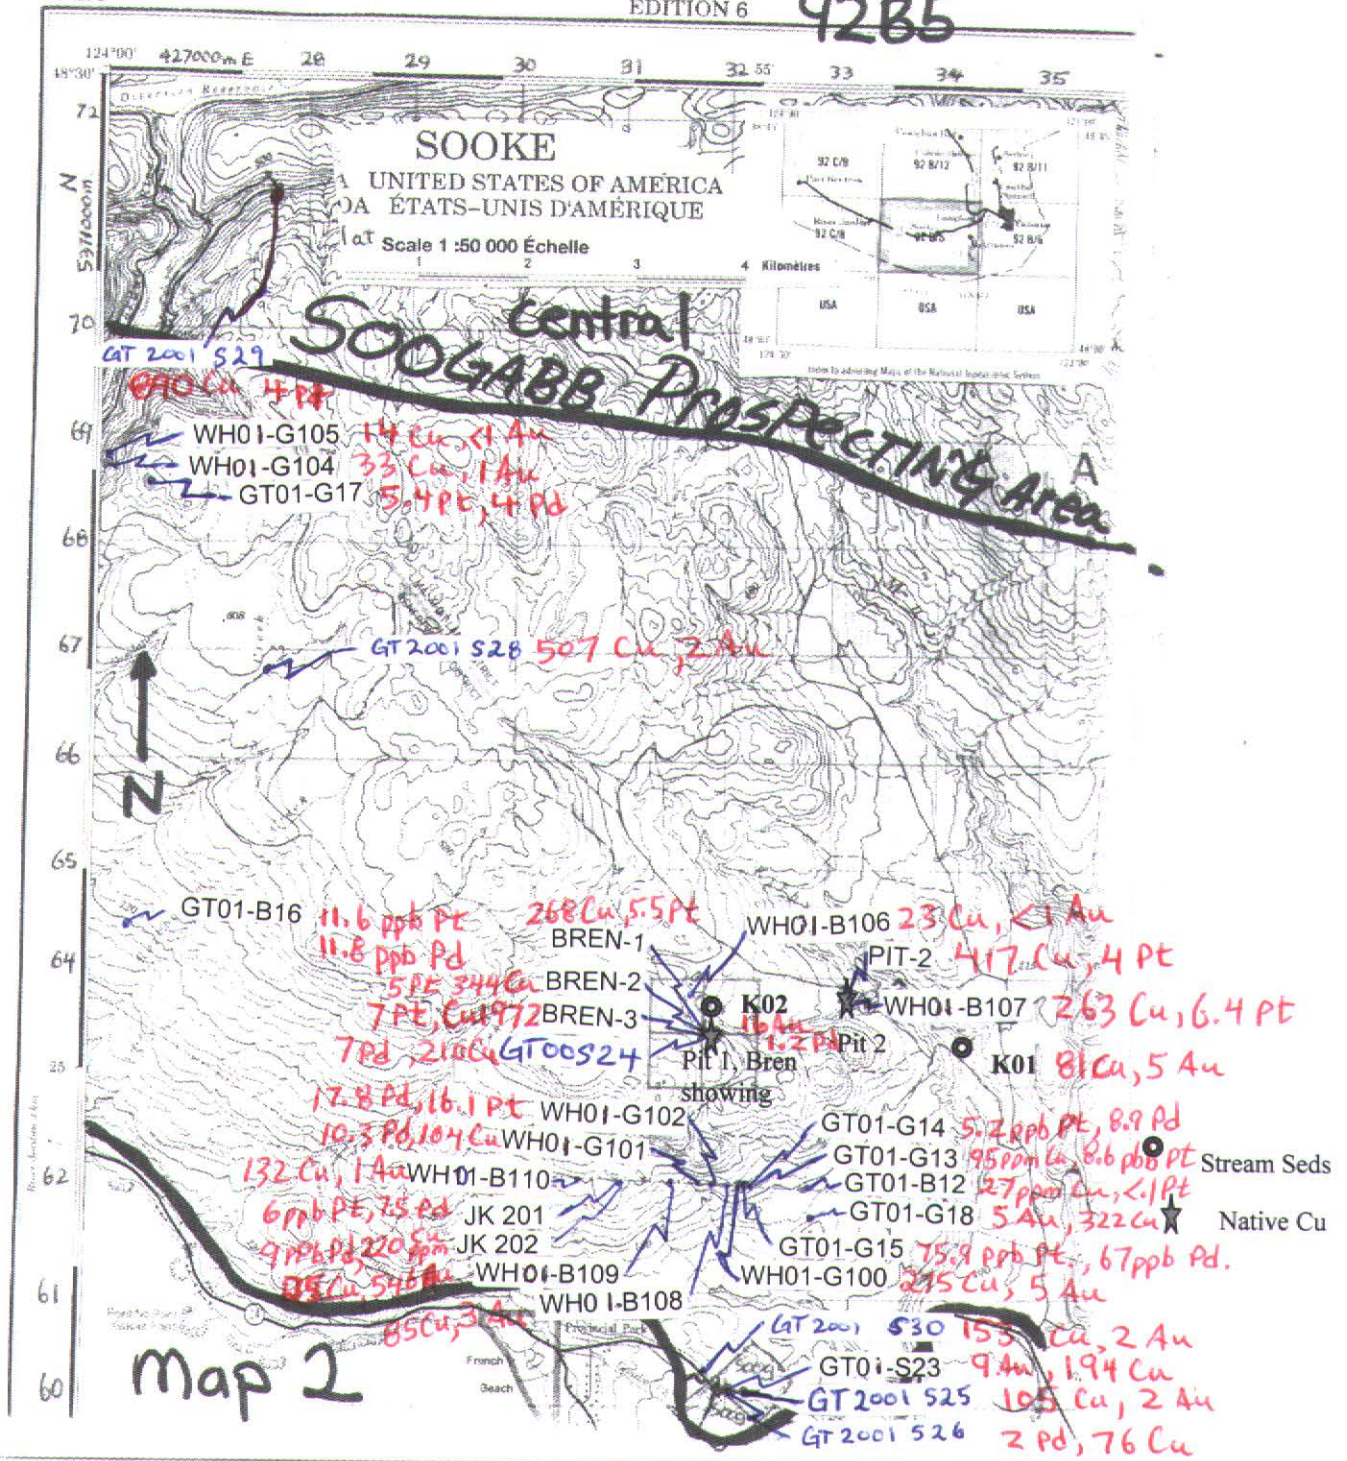 EDITION 6
92B5
124°00' 427000m E 28 29 30 31 32 55' 33 34 35
48°30'
72
N
5371000m
70
69
68
67
66
65
64
62
61
60
SOOKE
UNITED STATES OF AMERICA
DA ÉTATS-UNIS D'AMÉRIQUE
Scale 1 :50 000 Échelle
1 2 3 4 Kilomètres
92 C/9 92 B/12 92 B/11
92 C/8 92 B/5 92 B/6
USA USA USA
Central
SOOGABB Prospecting Area
A
GT 2001 S29
690 Cu 4 Pt
WH01-G105 14 Cu, <1 Au
WH01-G104 33 Cu, 1 Au
GT01-G17 5.4 Pt, 4 Pd
GT 2001 S28 507 Cu, 2 Au
N
GT01-B16 11.6 ppb Pt
11.8 ppb Pd
268 Cu, 5.5 Pt
BREN-1
WH01-B106 23 Cu, <1 Au
PIT-2 417 Cu, 4 Pt
5 Pt 344 Cu BREN-2
WH01-B107 263 Cu, 6.4 Pt
K02
16 Au
1.2 Pd
7 Pt, Cu 1972 BREN-3
7 Pd, 210 Cu GT00S24
Pit 1, Bren
showing
Pit 2
K01 81 Cu, 5 Au
17.8 Pd, 16.1 Pt WH01-G102
10.3 Pd, 104 Cu WH01-G101
132 Cu, 1 Au WH01-B110
6 ppb Pt, 7.5 Pd JK 201
JK 202
WH01-B109
WH01-B108
85 Cu, 3 Au
GT01-G14 5.2 ppb Pt, 8.9 Pd
GT01-G13 95 ppm Cu 8.6 ppb Pt
GT01-B12 27 ppm Cu, <.1 Pt
GT01-G18 5 Au, 322 Cu
GT01-G15 75.9 ppb Pt., 67 ppb Pd.
WH01-G100 275 Cu, 5 Au
Stream Seds
Native Cu
GT 2001 S30 153 Cu, 2 Au
GT01-S23 9 Au, 194 Cu
GT 2001 S25 105 Cu, 2 Au
GT 2001 S26 2 Pd, 76 Cu
Provincial Park
French
Beach
Map 2